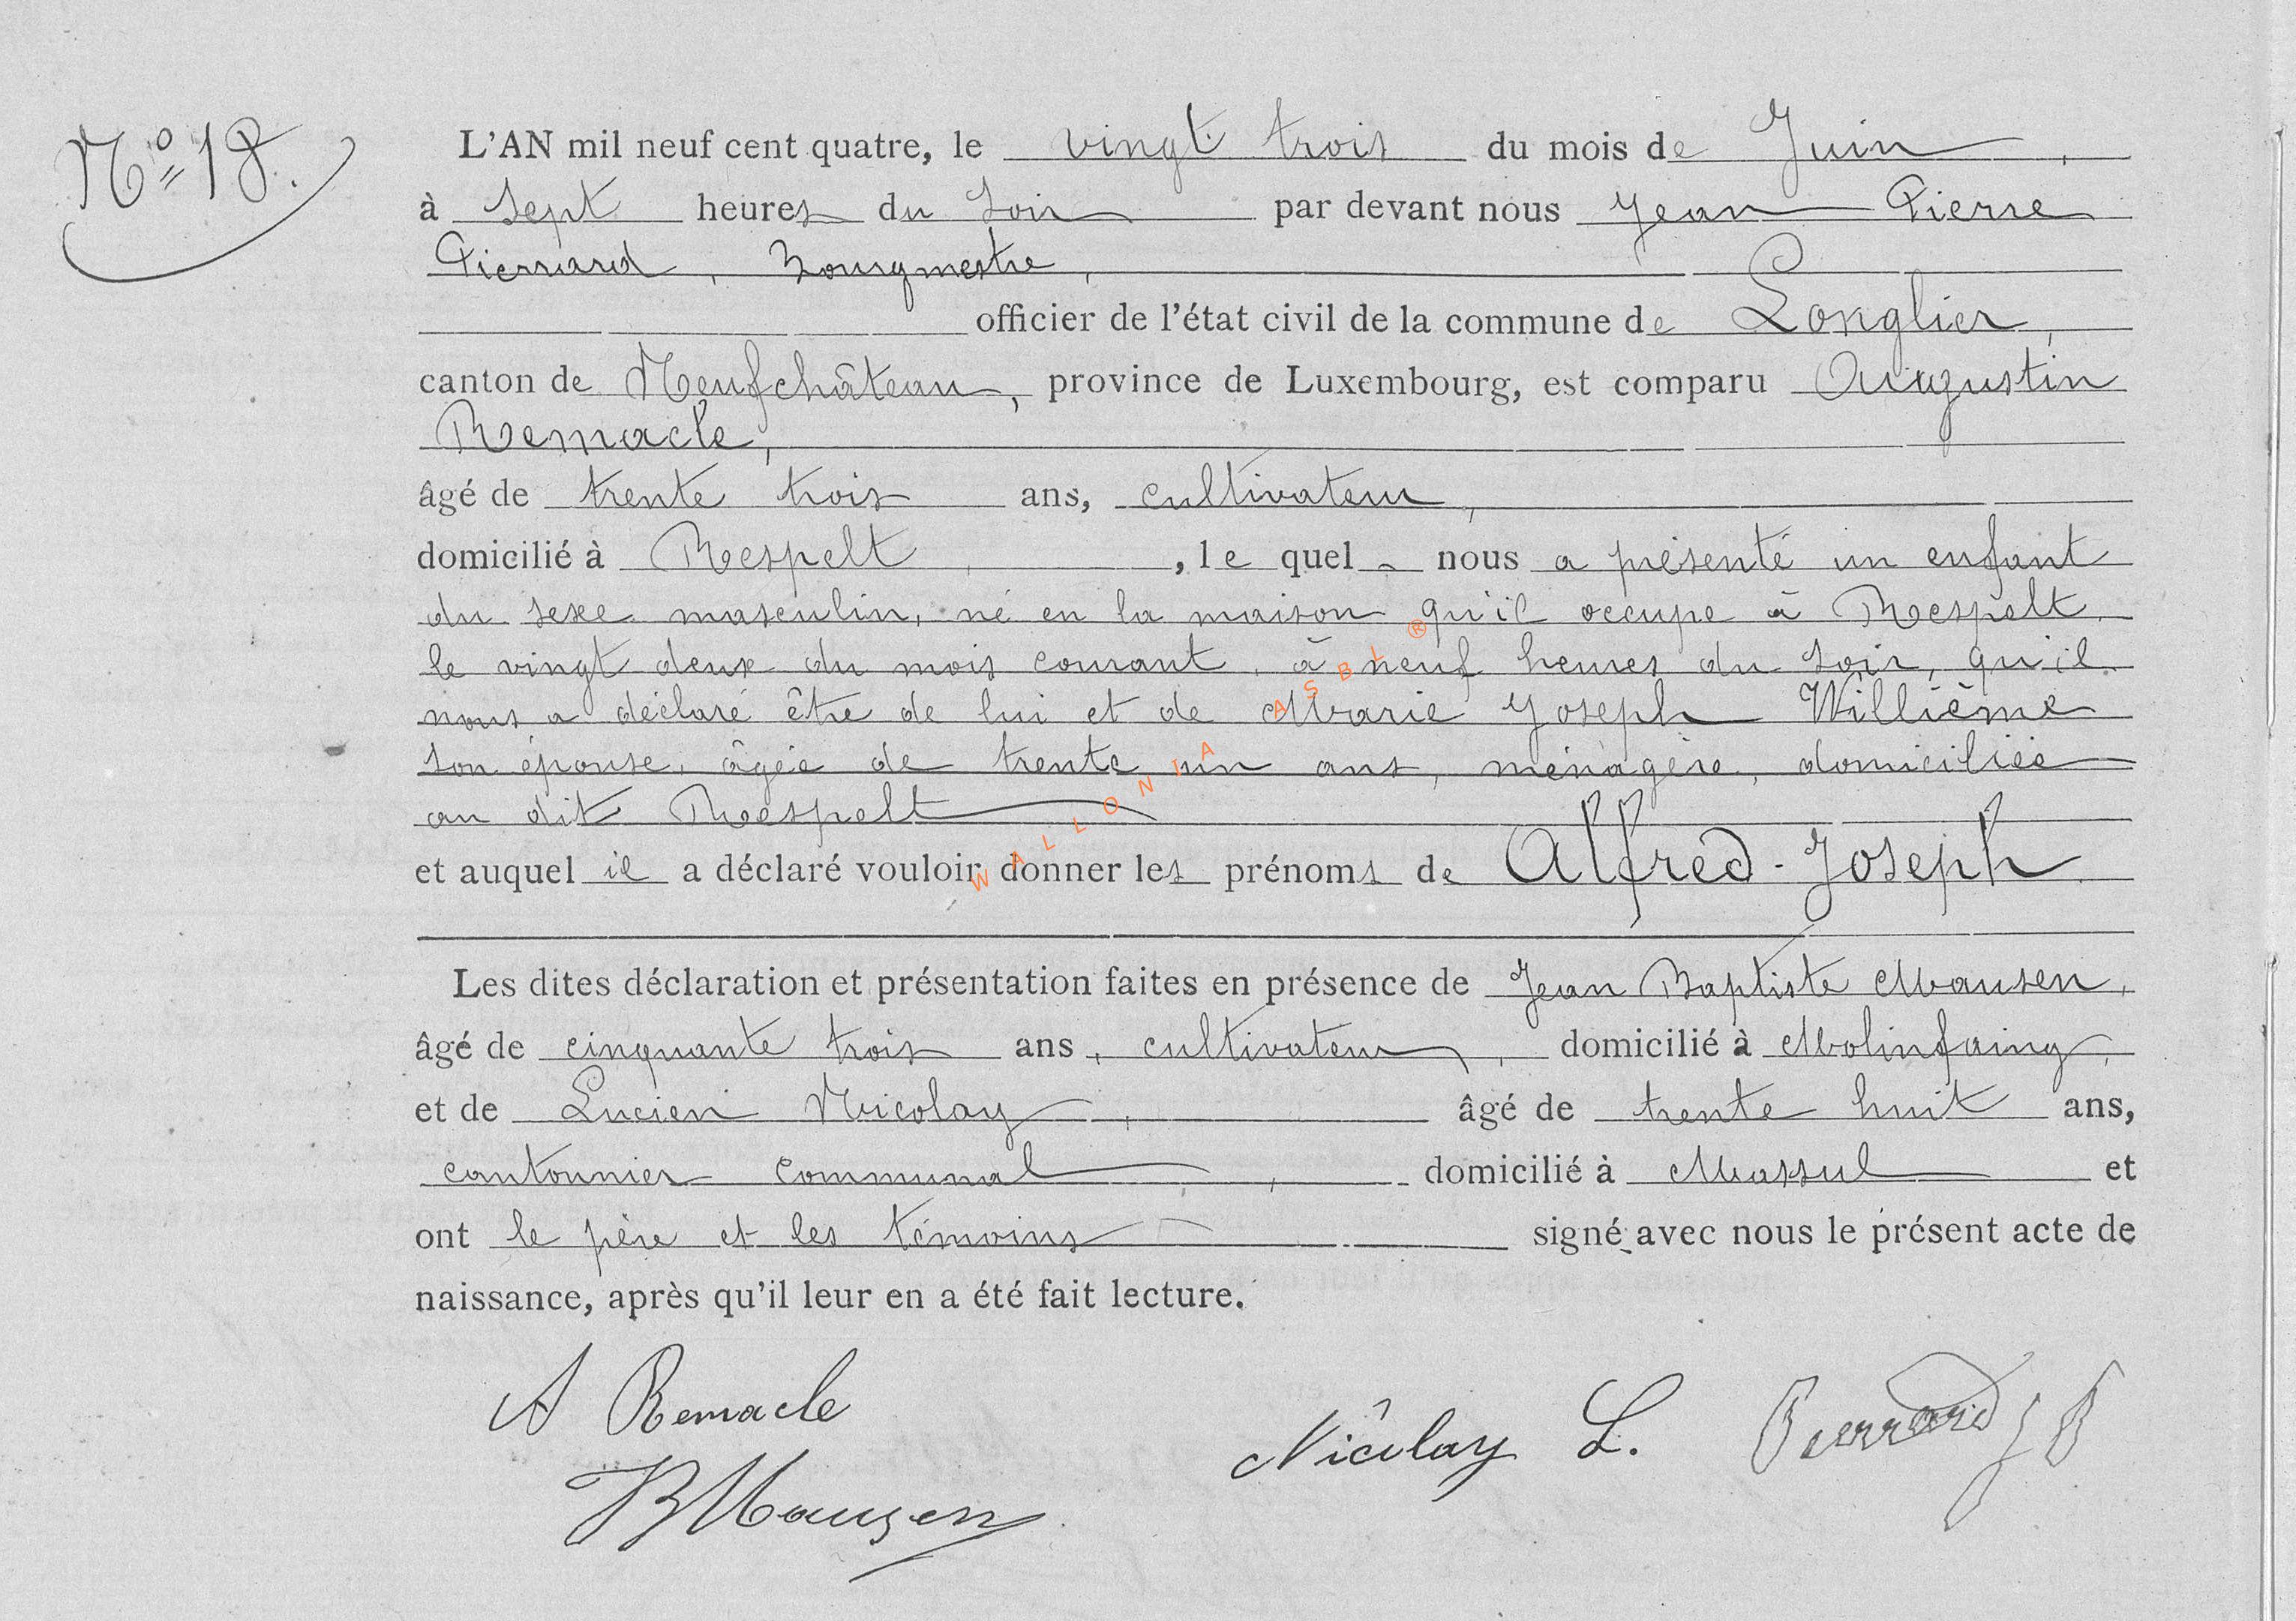 Nº 18.
L'AN mil neuf cent quatre, le vingt trois du mois de Juin,
à sept heures du soir par devant nous Jean Pierre
Pierrard, Bourgmestre,
officier de l'état civil de la commune de Longlier,
canton de Neufchâteau, province de Luxembourg, est comparu Augustin
Remacle,
âgé de trente trois ans, cultivateur,
domicilié à Respelt, le quel nous a présenté un enfant
du sexe masculin, né en la maison qu'il occupe à Respelt,
le vingt deux du mois courant, à neuf heures du soir, qu'il
nous a déclaré être de lui et de Marie Joseph Willième
son épouse, âgée de trente un ans, ménagère, domiciliée
au dit Respelt
et auquel il a déclaré vouloir donner les prénoms de Alfred-Joseph.
Les dites déclaration et présentation faites en présence de Jean Baptiste Mausen,
âgé de cinquante trois ans, cultivateur, domicilié à Molinfaing,
et de Lucien Nicolay, âgé de trente huit ans,
cantonnier communal, domicilié à Massul et
ont le père et les témoins signé avec nous le présent acte de
naissance, après qu'il leur en a été fait lecture.
A Remacle
Nicolay L. Pierrard J P
JB Mausen
WALLONIA ASBL ®